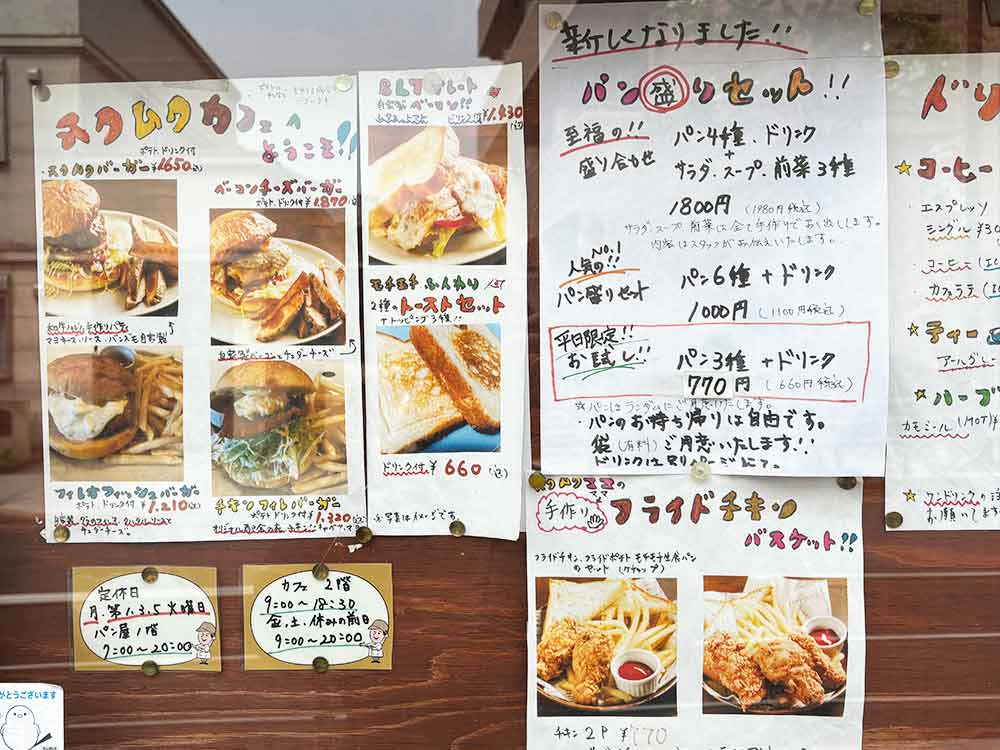 ムクムクカフェへ
ようこそ!!
ポテト、ドリンク付
ムクムクバーガー ¥1650(込)
ベーコンチーズバーガー
ポテト、ドリンク付 ¥1870(込)
和牛100% 手作りパテ
マヨネーズ・ソース・バンズも自家製
自家製ベーコンとチェダーチーズ
フィレオフィッシュバーガー
ポテト、ドリンク付 ¥1,210(込)
チェダーチーズ。
チキンフィレバーガー
ポテト、ドリンク付 ¥1,320(込)
BLTプレート
自家製ベーコン!!
ドリンク付 ¥1,430(込)
モチモチ ふんわり
2種・トーストセット
+トッピング3種!!
ドリンク付 ¥660(込)
※写真はイメージです。
新しくなりました!!
パン盛りセット!!
至福の!!
盛り合せ
パン4種、ドリンク
+
サラダ、スープ、前菜3種
1800円 (1980円税込)
サラダ、スープ、前菜は全て手作りでお出しします。
内容はスタッフがお伝えいたします。
NO.1
人気の!!
パン盛りセット
パン6種+ドリンク
1000円 (1100円税込)
平日限定!!
お試し!!
パン3種+ドリンク
770円 (660円税込)
☆パンはランダムにご用意いたします。
・パンのお持ち帰りは自由です。
袋(有料)ご用意いたします!!
ドリンクは別ページにて。
ムクムクママの
手作り
フライドチキン
バスケット!!
フライドチキン、フライドポテト モチモチ生食パン
のセット (ケチャップ)
チキン 2P ¥770
ドリ
コーヒー
・エスプレッソ
シングル
・コーヒー
・カフェラテ
ティー
アールグレー
・ハーブ
カモミール (HOT)
定休日
月・第1.3.5火曜日
パン屋 1階
9:00〜20:00
カフェ 2階
9:00〜18:30
金、土、休みの前日
9:00〜20:00
がとうございます